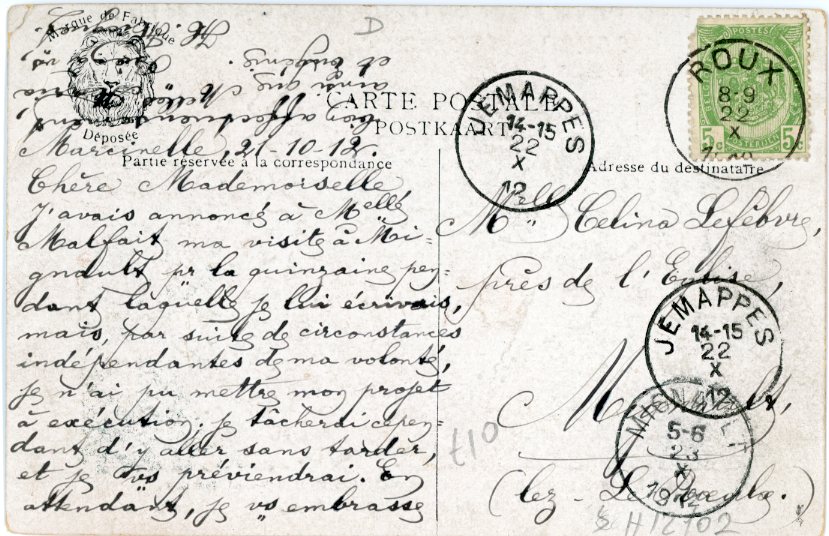 Marque de Fabrique
Déposée
CARTE POSTALE
POSTKAART
Partie réservée à la correspondance
Adresse du destinataire
Marcinelle, 21-10-12.
Chère Mademoiselle
J'avais annoncé à Melle
Malfait ma visite à Mi-
gnault pr la quinzaine pen-
dant laquelle je lui écrivais,
mais, par suite de circonstances
indépendantes de ma volonté,
je n'ai pu mettre mon projet
à exécution. Je tâcherai cepen-
dant d'y aller sans tarder,
et je vs préviendrai. En
attendant, je vs embrasse
ainsi que
et
Melle Celina Lefèbvre,
près de l'Eglise,
Mignault,
(lez- Le Roeulx.)
POSTES
5c 5c
ROUX
8-9
22
X
JEMAPPES
14-15
22
X
12
JEMAPPES
14-15
22
X
12
MIGNAULT
5-6
23
X
1912
D
t10
H12102